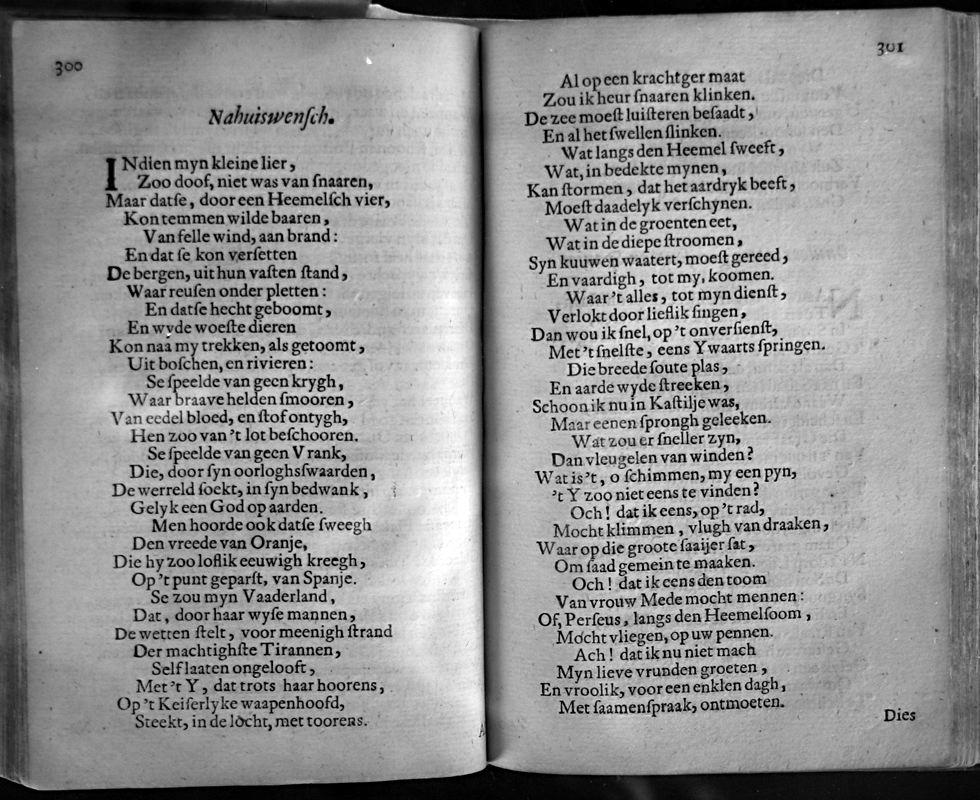 300
Nahuiswenſch.
INdien myn kleine lier,
Zoo doof, niet was van ſnaaren,
Maar datſe, door een Heemelſch vier,
Kon temmen wilde baaren,
Van felle wind, aan brand:
En dat ſe kon verſetten
De bergen, uit hun vaſten ſtand,
Waar reuſen onder pletten:
En datſe hecht geboomt,
En wyde woeſte dieren
Kon naa my trekken, als getoomt,
Uit boſchen, en rivieren:
Se ſpeelde van geen krygh,
Waar braave helden ſmooren,
Van eedel bloed, en ſtof ontygh,
Hen zoo van 't lot beſchooren.
Se ſpeelde van geen Vrank,
Die, door ſyn oorloghsſwaarden,
De werreld ſoekt, in ſyn bedwank,
Gelyk een God op aarden.
Men hoorde ook datſe ſweegh
Den vreede van Oranje,
Die hy zoo loflik eeuwigh kreegh,
Op 't punt geparſt, van Spanje.
Se zou myn Vaaderland,
Dat, door haar wyſe mannen,
De wetten ſtelt, voor meenigh ſtrand
Der machtighſte Tirannen,
Self laaten ongelooft,
Met 't Y, dat trots haar hoorens,
Op 't Keiſerlyke waapenhoofd,
Steekt, in de locht, met toorens.
301
Al op een krachtger maat
Zou ik heur ſnaaren klinken.
De zee moeſt luiſteren beſaadt,
En al het ſwellen ſlinken.
Wat langs den Heemel ſweeft,
Wat, in bedekte mynen,
Kan ſtormen, dat het aardryk beeft,
Moeſt daadelyk verſchynen.
Wat in de groenten eet,
Wat in de diepe ſtroomen,
Syn kuuwen waatert, moeſt gereed,
En vaardigh, tot my, koomen.
Waar 't alles, tot myn dienſt,
Verlokt door lieflik ſingen,
Dan wou ik ſnel, op 't onverſienſt,
Met 't ſnelſte, eens Ywaarts ſpringen.
Die breede ſoute plas,
En aarde wyde ſtreeken,
Schoon ik nu in Kaſtilje was,
Maar eenen ſprongh geleeken.
Wat zou er ſneller zyn,
Dan vleugelen van winden?
Wat is 't, o ſchimmen, my een pyn,
't Y zoo niet eens te vinden?
Och! dat ik eens, op 't rad,
Mocht klimmen, vlugh van draaken,
Waar op die groote ſaaijer ſat,
Om ſaad gemein te maaken.
Och! dat ik eens den toom
Van vrouw Mede mocht mennen:
Of, Perſeus, langs den Heemelſoom,
Mocht vliegen, op uw pennen.
Ach! dat ik nu niet mach
Myn lieve vrunden groeten,
En vroolik, voor een enklen dagh,
Met ſaamenſpraak, ontmoeten.
Dies